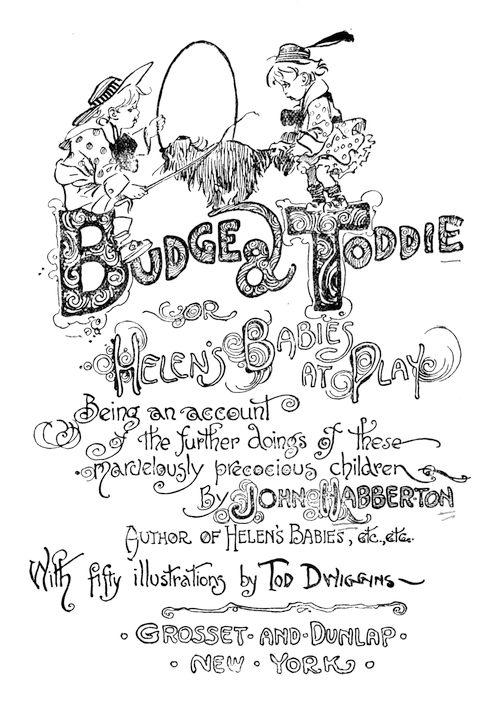 BUDGE & TODDIE
OR
HELEN'S BABIES
AT PLAY
Being an account
of the further doings of these
marvelously precocious children
By JOHN HABBERTON
AUTHOR OF HELEN'S BABIES, etc., etc.
With fifty illustrations by TOD DWIGGINS
· GROSSET · AND · DUNLAP ·
· NEW · YORK ·